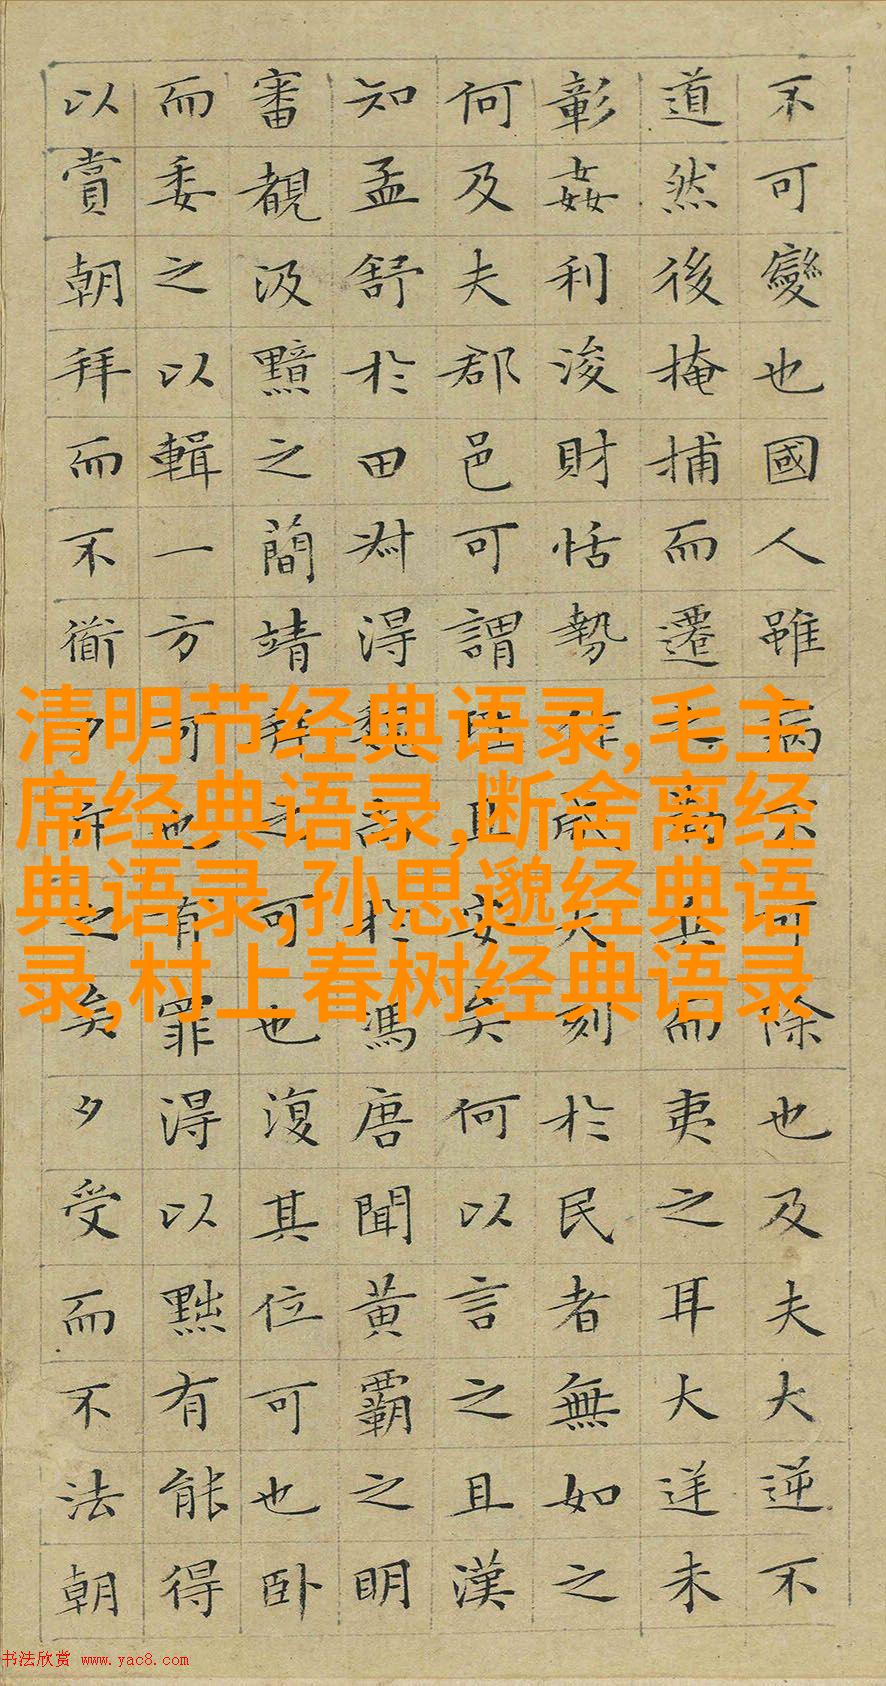 不可變也國人雖病不可除也及夫大逆不
道然後掩捕而遷之勒兵而夷之耳大逆未
彰姦利浚財怙勢作威大刻於民者無如之
何及夫郡邑可謂理且安矣何以言之且漢
知孟舒於田叔得魏尚於馮唐聞黃霸之明
審覩汲黯之簡靖拜之可也復其位可也卧
而委之以輯一方可也有罪得以黜有能得
以賞朝拜而不衜夕斥之矣夕受而不法朝
清明节经典语录,毛主
席经典语录,断舍离经
典语录,孙思邈经典语
录,村上春树经典语录
书法欣赏 www.yac8.com